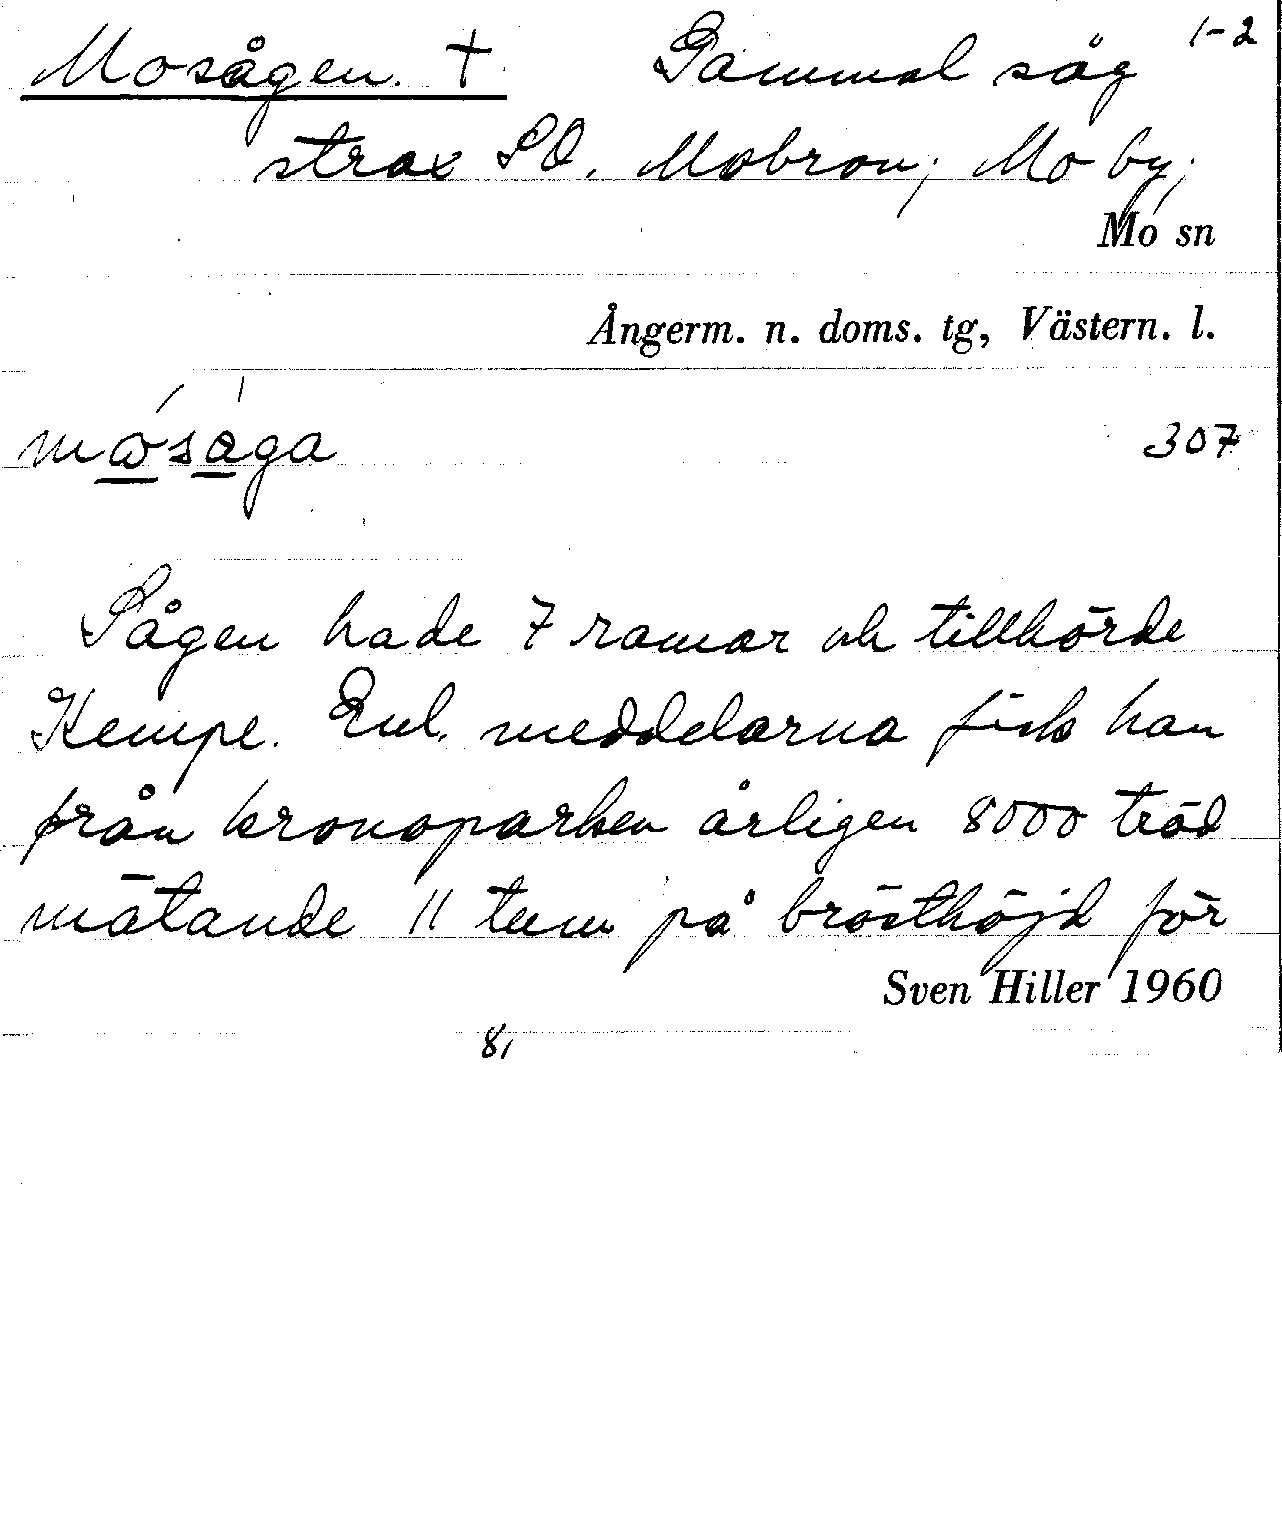 Mosågen. † Gammal såg 1-2
strax SO. Mobron; Mo by;
Mo sn
Ångerm. n. doms. tg, Västern. l.
måsåga 307
Sågen hade 7 ramar och tillhörde
Kempe. Enl. meddelarna fick han
från kronoparken årligen 8000 träd
mätande 11 tum på brösthöjd för
Sven Hiller 1960
8,